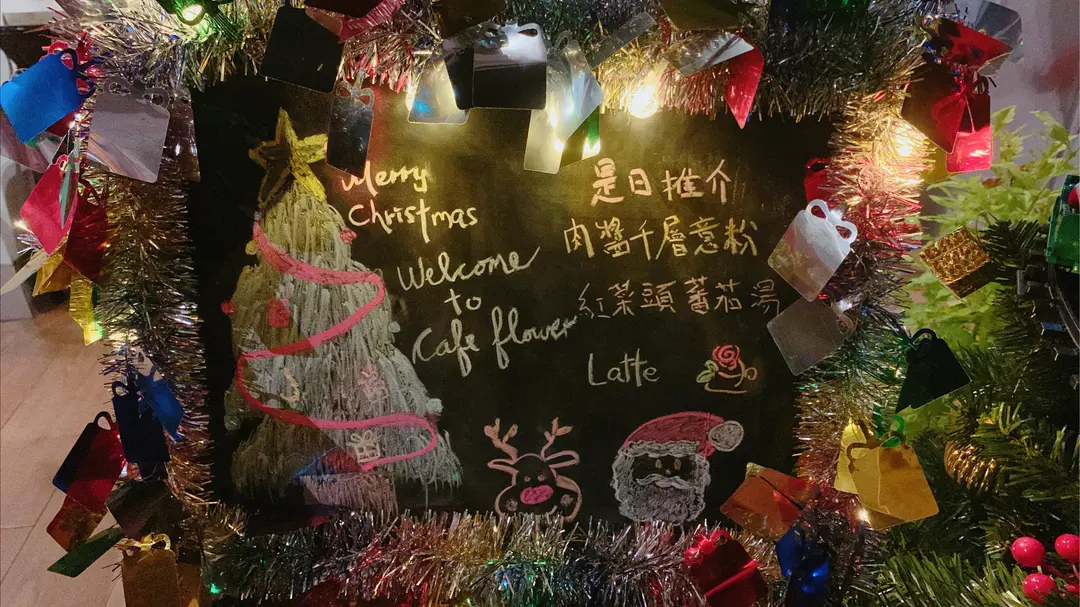 Merry
Christmas
Welcome
to
Cafe flower
是日推介
肉醬千層意粉
紅菜頭蕃茄湯
Latte